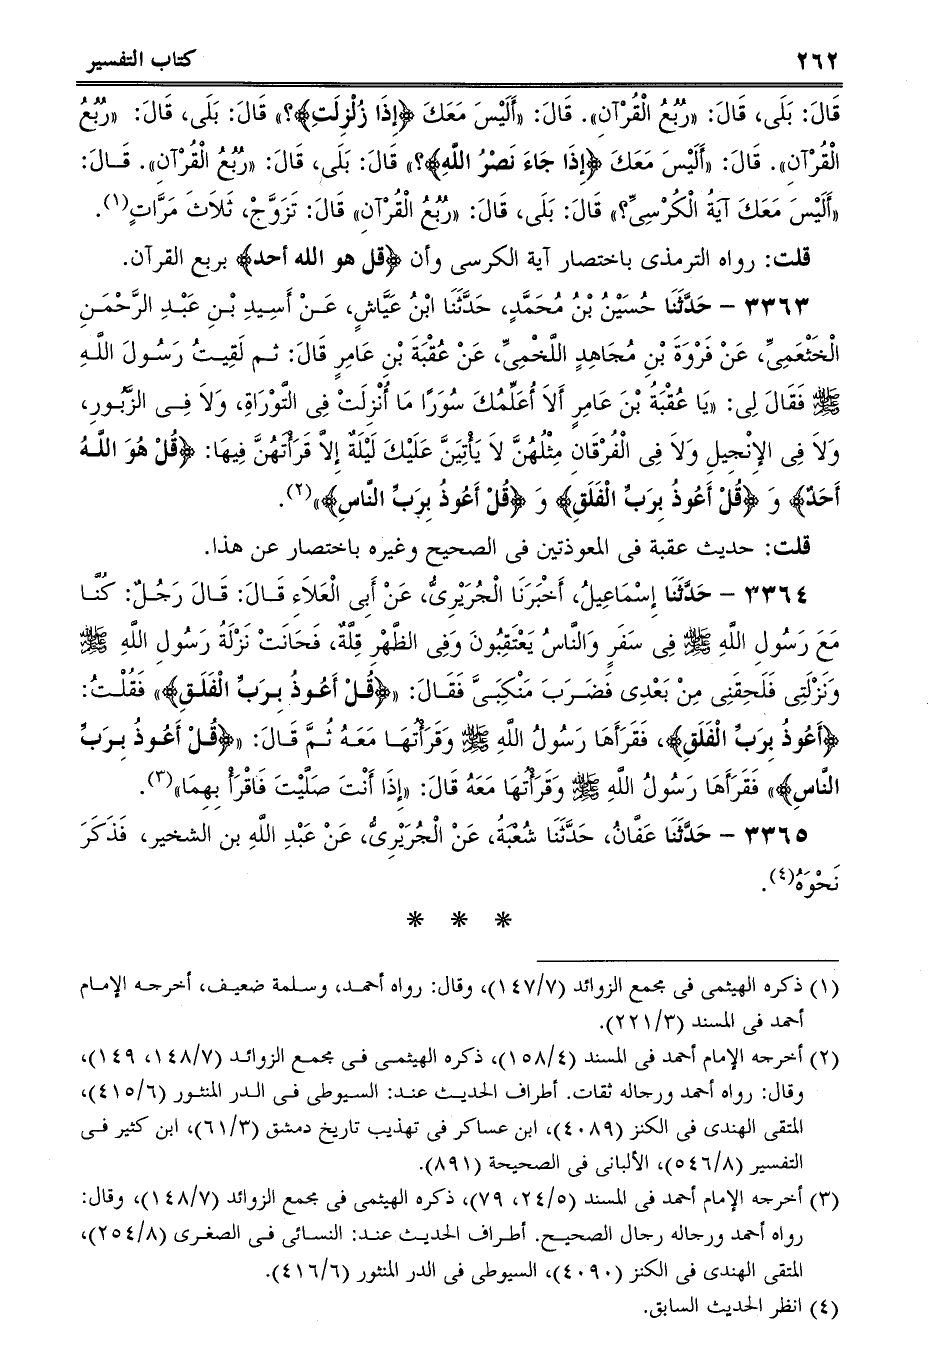 ٢٦٢
كتاب التفسير
قَالَ: بَلَى، قَالَ: «رُبُعُ الْقُرْآنِ». قَالَ: «أَلَيْسَ مَعَكَ ﴿إِذَا زُلْزِلَتِ﴾؟» قَالَ: بَلَى، قَالَ: «رُبُعُ
الْقُرْآنِ». قَالَ: «أَلَيْسَ مَعَكَ ﴿إِذَا جَاءَ نَصْرُ اللَّهِ﴾؟» قَالَ: بَلَى، قَالَ: «رُبُعُ الْقُرْآنِ». قَـالَ:
«أَلَيْسَ مَعَكَ آيَةُ الْكُرْسِيِّ؟» قَالَ: بَلَى، قَالَ: «رُبُعُ الْقُرْآنِ» قَالَ: تَزَوَّجْ، ثَلاَثَ مَرَّاتٍ(١).
قلت: رواه الترمذى باختصار آية الكرسى وأن ﴿قل هو الله أحد﴾ بربع القرآن.
٣٣٦٣ – حَدَّثَنَا حُسَيْنُ بْنُ مُحَمَّدٍ، حَدَّثَنَا ابْنُ عَيَّاشٍ، عَـنْ أَسِيدِ بْـنِ عَبْـدِ الرَّحْمَـنِ
الْخَثْعَمِيِّ، عَنْ فَرْوَةَ بْنِ مُجَاهِدٍ اللَّخْمِيِّ، عَنْ عُقْبَةَ بْنِ عَامِرٍ قَالَ: ثـم لَقِيـتُ رَسُـولَ اللَّـهِ
ﷺ فَقَالَ لِى: «يَا عُقْبَةُ بْنَ عَامِرٍ أَلاَ أُعَلِّمُكَ سُوَرًا مَا أُنْزِلَتْ فِى التَّوْرَاةِ، وَلاَ فِـى الزَّبُـورِ،
وَلاَ فِى الإِنْجِيلِ وَلاَ فِى الْفُرْقَانِ مِثْلُهُنَّ لاَ يَأْتِيَنَّ عَلَيْكَ لَيْلَةٌ إِلاَّ قَرَأْتَهُنَّ فِيهَا: ﴿قُلْ هُوَ اللَّـهُ
أَحَدٌ﴾ وَ ﴿قُلْ أَعُوذُ بِرَبِّ الْفَلَقِ﴾ وَ ﴿قُلْ أَعُوذُ بِرَبِّ النَّاسِ﴾»(٢).
قلت: حديث عقبة فى المعوذتين فى الصحيح وغيره باختصار عن هذا.
٣٣٦٤ – حَدَّثَنَا إِسْمَاعِيلُ، أَخْبَرَنَا الْجُرَيْرِىُّ، عَنْ أَبِى الْعَلاَءِ قَـالَ: قَـالَ رَجُـلٌ: كُنَّـا
مَعَ رَسُولِ اللَّهِ ﷺ فِى سَفَرٍ وَالنَّاسُ يَعْتَقِبُونَ وَفِى الظَّهْرِ قِلَّةٌ، فَحَانَتْ نَزْلَةُ رَسُولِ اللَّهِ ﷺ
وَنَزْلَتِى فَلَحِقَنِى مِنْ بَعْدِى فَضَـرَبَ مَنْكِبَـىَّ فَقَـالَ: «﴿قُـلْ أَعُـوذُ بِـرَبِّ الْفَلَـقِ﴾» فَقُلْـتُ:
﴿أَعُوذُ بِرَبِّ الْفَلَقِ﴾، فَقَرَأَهَا رَسُولُ اللَّهِ ﷺ وَقَرَأْتُهَـا مَعَـهُ ثُـمَّ قَـالَ: «﴿قُـلْ أَعُـوذُ بِـرَبِّ
النَّاسِ﴾» فَقَرَأَهَا رَسُولُ اللَّهِ ﷺ وَقَرَأْتُهَا مَعَهُ قَالَ: «إِذَا أَنْتَ صَلَّيْتَ فَاقْرَأْ بِهِمَا»(٣).
٣٣٦٥ – حَدَّثَنَا عَفَّانُ، حَدَّثَنَا شُعْبَةُ، عَنْ الْجُرَيْرِىُّ، عَنْ عَبْدِ اللَّهِ بن الشخير، فَذَكَرَ
نَحْوَهُ(٤).
* * *
(١) ذكره الهيثمى فى مجمع الزوائد (١٤٧/٧)، وقال: رواه أحمد، وسلمة ضعيف، أخرجـه الإمـام
أحمد فى المسند (٢٢١/٣).
(٢) أخرجه الإمام أحمد فى المسند (١٥٨/٤)، ذكره الهيثمـى فـى مجمـع الزوائـد (١٤٨/٧، ١٤٩)،
وقال: رواه أحمد ورجاله ثقات. أطراف الحديـث عنـد: السـيوطى فـى الـدر المنثـور (٤١٥/٦)،
المتقى الهندى فى الكنز (٤٠٨٩)، ابن عساكر فى تهذيب تاريخ دمشق (٦١/٣)، ابن كثير فـى
التفسير (٥٤٦/٨)، الألبانى فى الصحيحة (٨٩١).
(٣) أخرجه الإمام أحمد فى المسند (٢٤/٥، ٧٩)، ذكره الهيثمى فى مجمع الزوائد (١٤٨/٧)، وقال:
رواه أحمد ورجاله رجال الصحيح. أطـراف الحديـث عنـد: النسـائى فـى الصغـرى (٢٥٤/٨)،
المتقى الهندى فى الكنز (٤٠٩٠)، السيوطى فى الدر المنثور (٤١٦/٦).
(٤) انظر الحديث السابق.